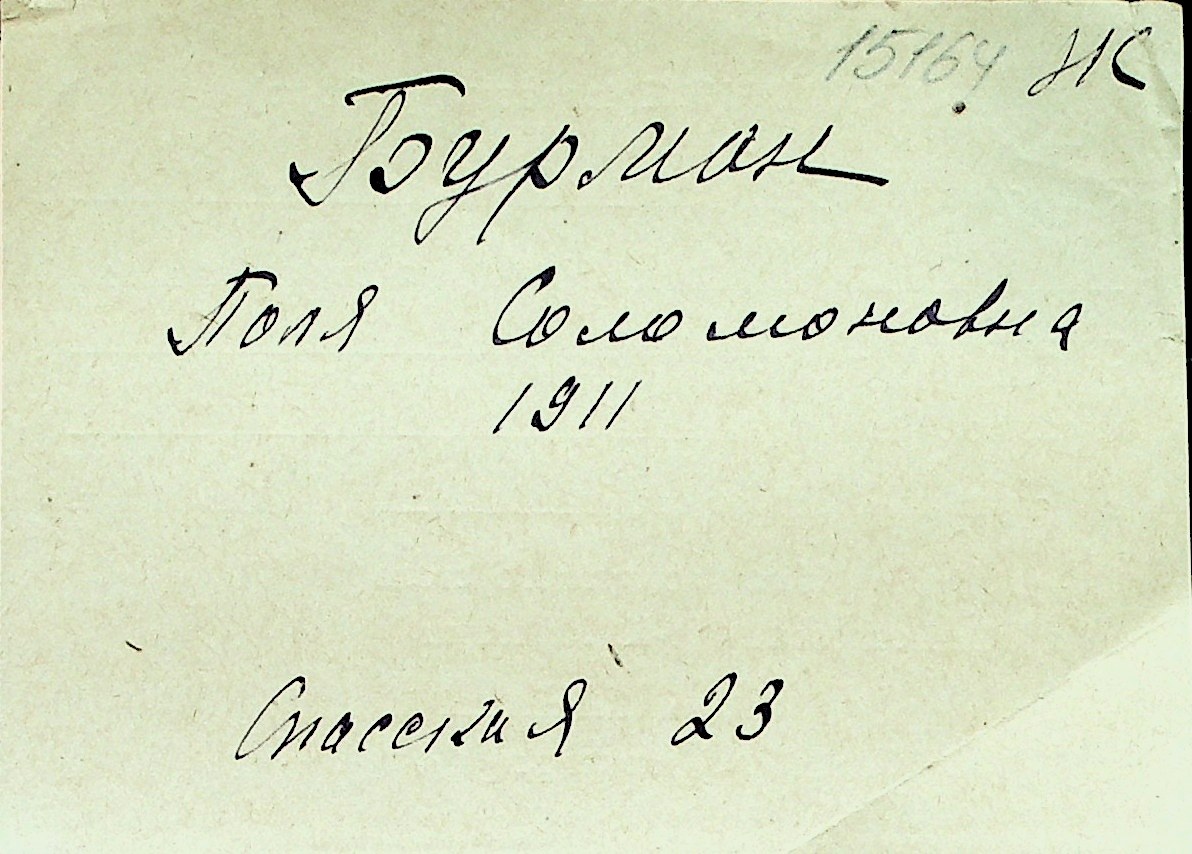 15164 НС
Бурман
Поля Соломоновна
1911
Спасская 23